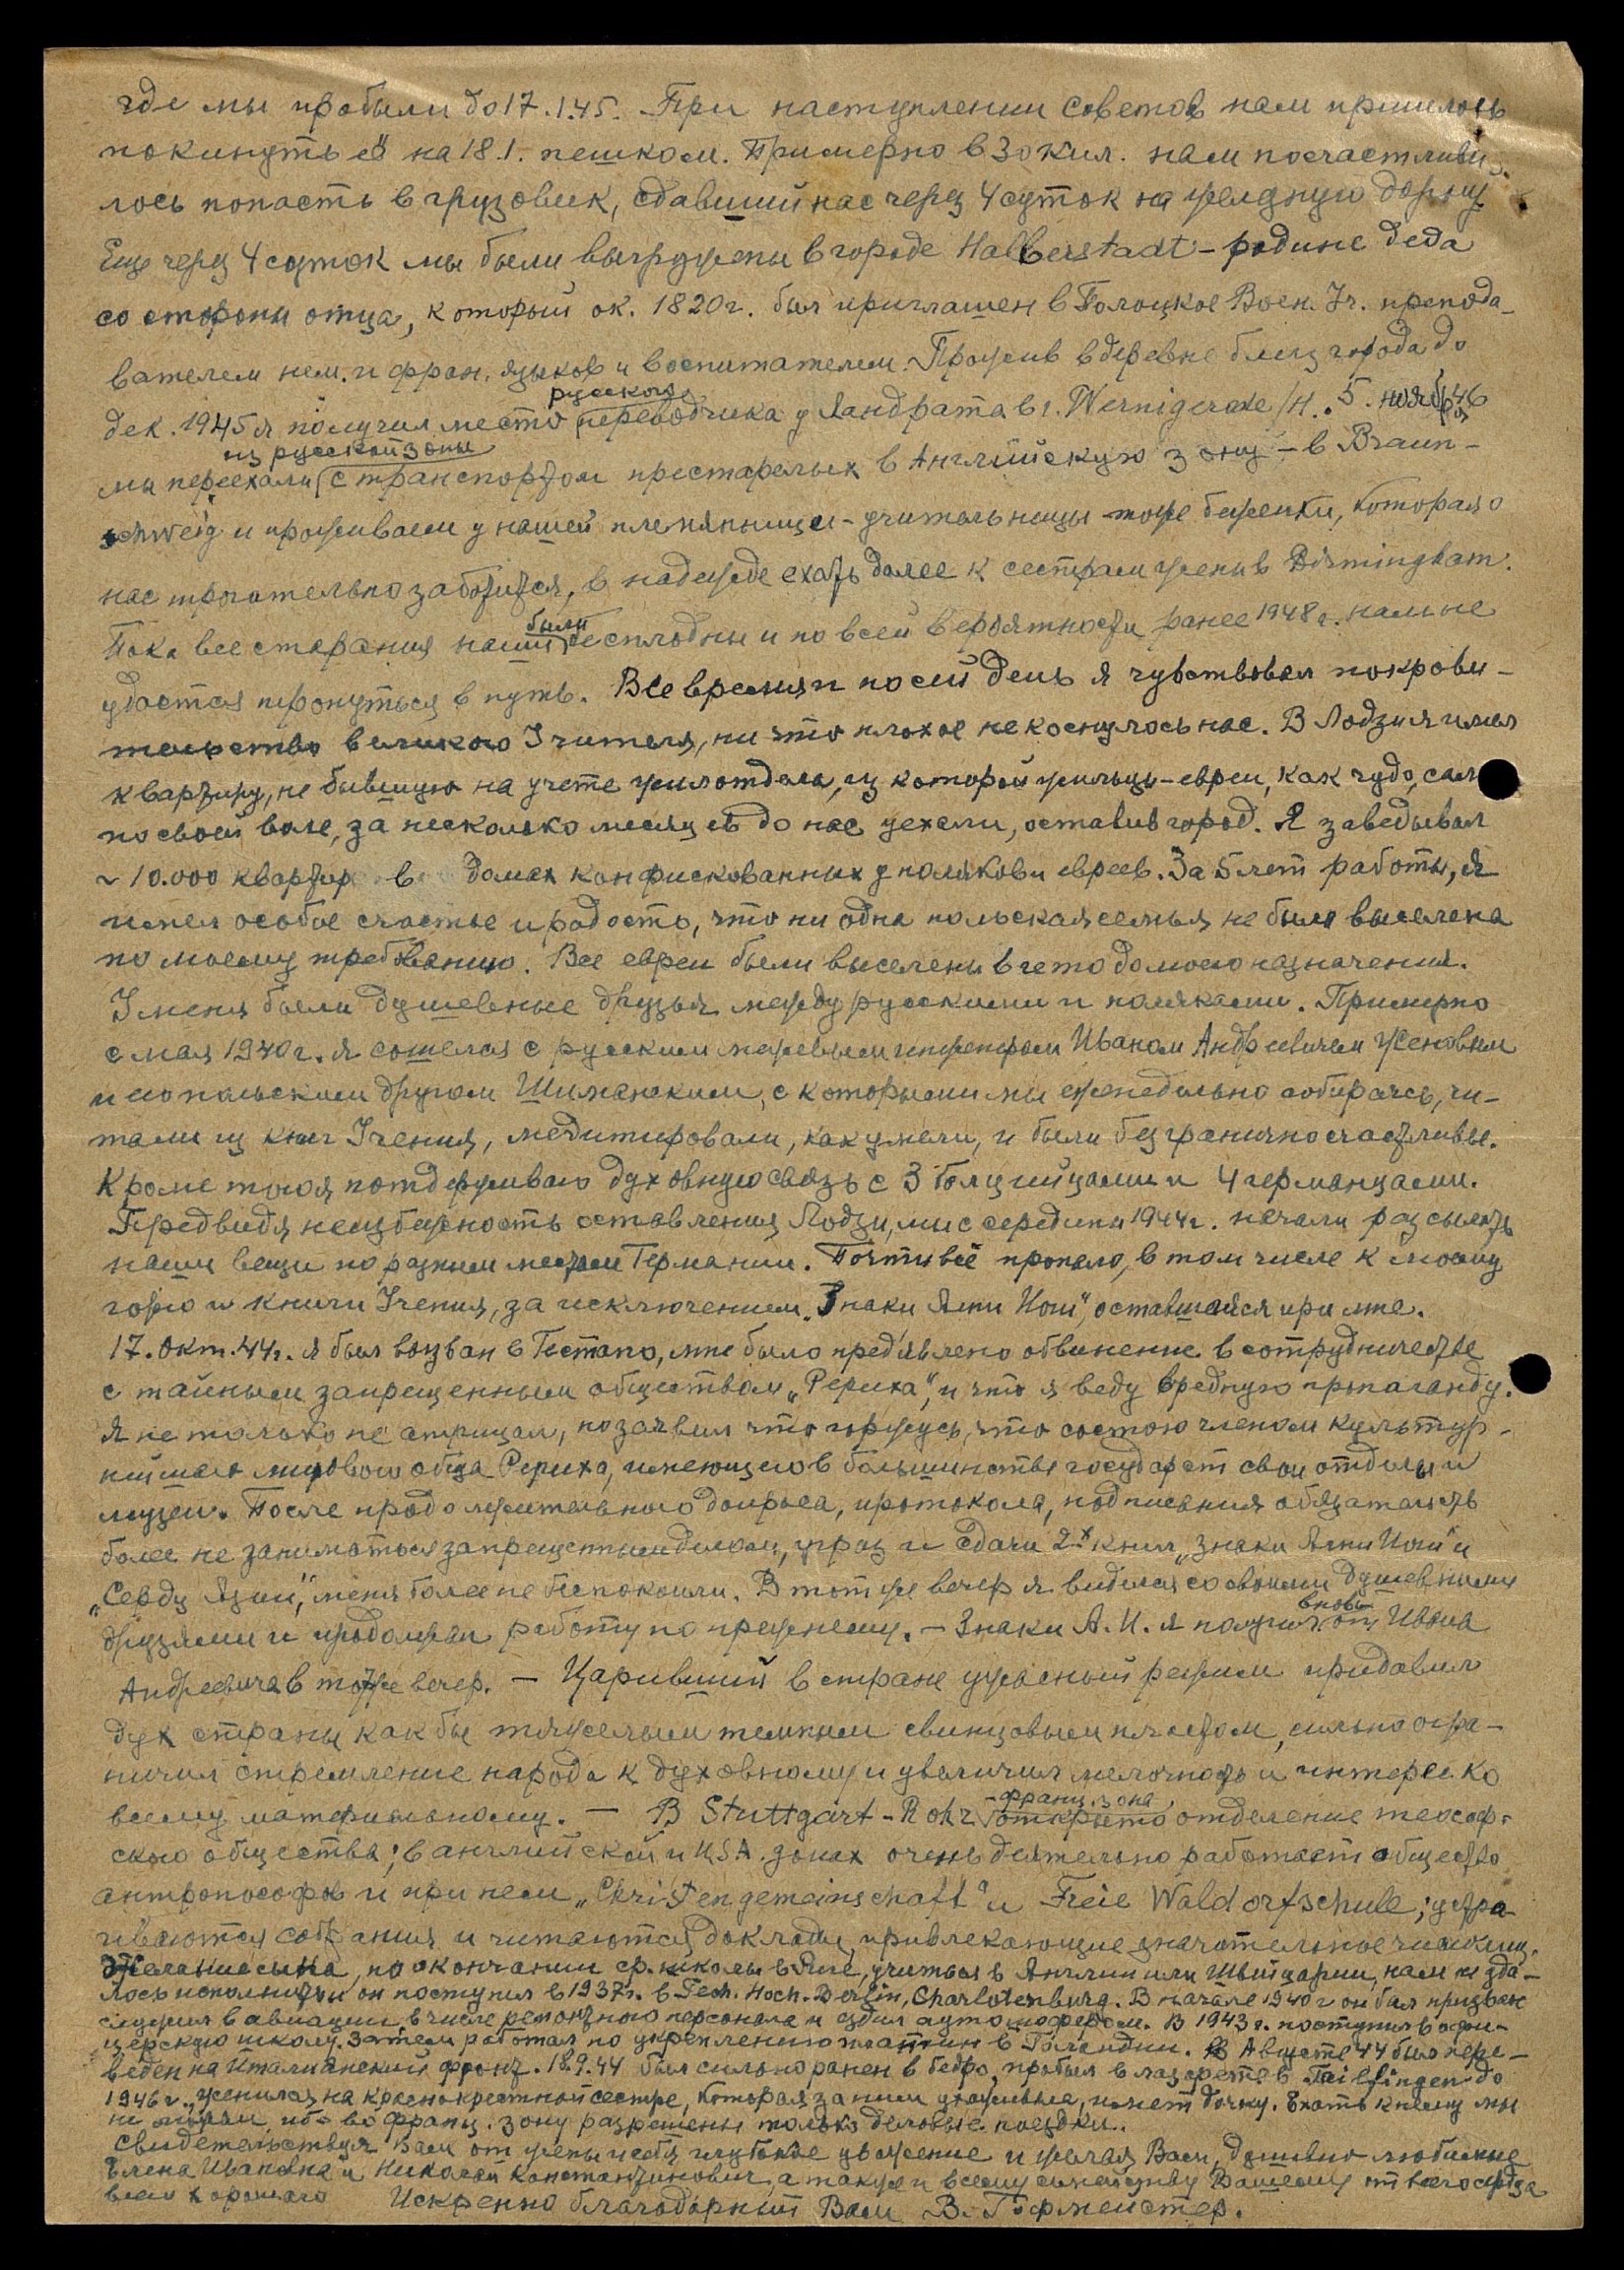 где мы пробыли до 17.1.45. При наступлении советов нам пришлось
покинуть её на 18.1. пешком. Примерно в 30 кил. нам посчастливи-
лось попасть в грузовик, сдавший нас через 4 суток на железную дорогу
Еще через 4 суток мы были выгружены в городе Halberstadt - родине деда
со стороны отца, который ок. 1820 г. был приглашен в Полоцкое Воен. Уч. препода-
вателем нем. и фран. языков и воспитателем. Прожив в деревне близ города до
дек. 1945 я получил место русского переводчика у Ландрата в г. Wernigerode /H. 5. ноября 46
мы переехали из русской зоны с транспортом престарелых в Английскую зону - в Braun-
schweig и проживаем у нашей племянницы - учительницы тоже беженки, которая о
нас трогательно заботится, в надежде ехать далее к сестрам жены в Birmingham.
Пока все старания наши были бесплодны и по всей вероятности ранее 1948 г. нам не
удастся тронуться в путь. Все время и по сей день я чувствовал покрови-
тельство великого Учителя, ни что плохое не коснулось нас. В Лодзи я имел
квартиру, не бывшую на учете жилотдела, из которой жильцы - евреи, как чудо, сами
по своей воле, за несколько месяцев до нас уехали, оставив город. Я заведывал
~ 10.000 квартир в домах конфискованных у поляков и евреев. За 5 лет работы, я
имел особое счастье и радость, что ни одна польская семья не была выселена
по моему требованию. Все евреи были выселены в гето до моего назначения.
У меня были душевные друзья между русскими и поляками. Примерно
с мая 1940 г. я сошелся с русским инженером Иваном Андреевичем
и его польским другом Шиманским, с которыми мы еженедельно собираясь, чи-
тали из книг Учения, медитировали, как умели, и были безгранично счастливы.
Кроме того я поддерживаю духовную связь с 3 и 4 германцами.
Предвидя неизбежность оставления Лодзи, мы с середины 1944 г. начали рассылать
наши вещи по разным местам Германии. Почти всё пропало, в том числе к моему
горю и книги Учения, за исключением „Знаки Агни Йоги", оставшейся при мне.
17. Окт. 44 г. я был вызван в Гестапо, мне было предъявлено обвинение в сотрудничестве
с тайным запрещенным обществом „Рериха", и что я веду вредную пропаганду.
Я не только не отрицал, но заявил что горжусь, что состою членом культур-
нейшего мирового общ-ва Рериха, имеющего в большинстве государств свои отделы и
музеи. После продолжительного допроса, протокола, подписания обязательств
более не заниматься запрещенным делом, угроз и сдачи 2х книг „Знаки Агни Йоги" и
„Сердце Азии", меня более не беспокоили. В тот же вечер я виделся со своими душевными
друзьями и продолжал работу по прежнему. - Знаки А. И. я получил вновь от Ивана
Андреевича в тот же вечер. - Царивший в стране ужасный режим придавил
дух страны как бы тяжелым темным свинцовым пластом, сильно огра-
ничил стремление народа к духовному и увеличил мелочность и интерес ко
всему материальному. - В Stuttgart-Rohr - франц. зона открыто отделение теософ-
ского общества; в английской и USA. зонах очень деятельно работает общество
антропософов и при нем „Christengemeinschaft" и Freie Waldorfschule; устра-
иваются собрания и читаются доклады, привлекающие значительное число лиц.
Желание сына, по окончании ср. школы в Риге, учиться в Англии или Швейцарии, нам не уда-
лось исполнить и он поступил в 1937 г. в Tech. Hoch. Berlin, Charlotenburg. В начале 1940 г он был призван
служил в авиации в числе ремонтного персонала и ездил аутошофером. В 1943 г. поступил в офи-
церскую школу. Затем работал по укреплению в Голандии. В Августе 44 был пере-
веден на Итальянский фронт. 18.9.44 был сильно ранен в бедро, пробыл в лазарете в Tailfingen до
1946 г., женился на краснокрестной сестре, которая за ним ухаживала, имеет дочку. Ехать к нему мы
не могли, ибо во франц. зону разрешены только деловые поездки.
Свидетельствуя Вам от жены и себя глубокое уважение и желая Вам, душевно любимые
Елена Ивановна и Николай Константинович, а также и всему семейству Вашему от всего сердца
всего хорошего Искренно благодарный Вам В. Гофмейстер.